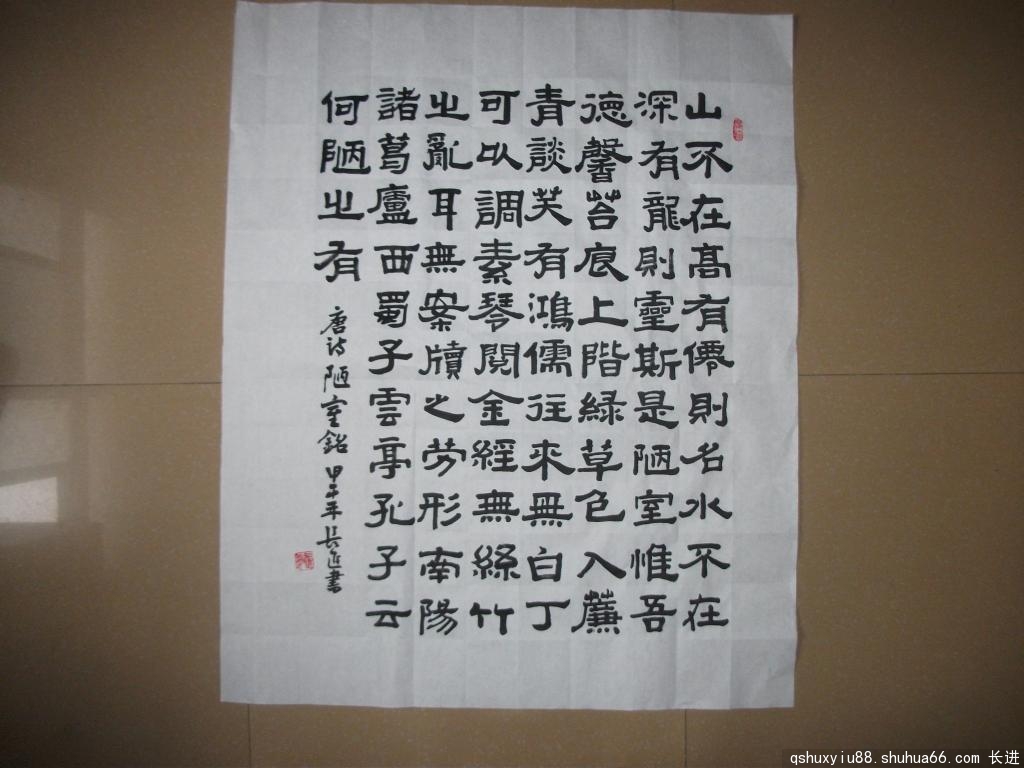 山不在髙有僊則名水不在
深有龍則靈斯是陋室惟吾
德馨苔痕上階緑草色入簾
青談笑有鴻儒往來無白丁
可以調素琴閲金經無絲竹
之亂耳無案牘之劳形南陽
諸葛廬西蜀子雲亭孔子云
何陋之有
唐诗陋室銘 甲午年長進書
qshuxyiu88.shuhua66.com 长进